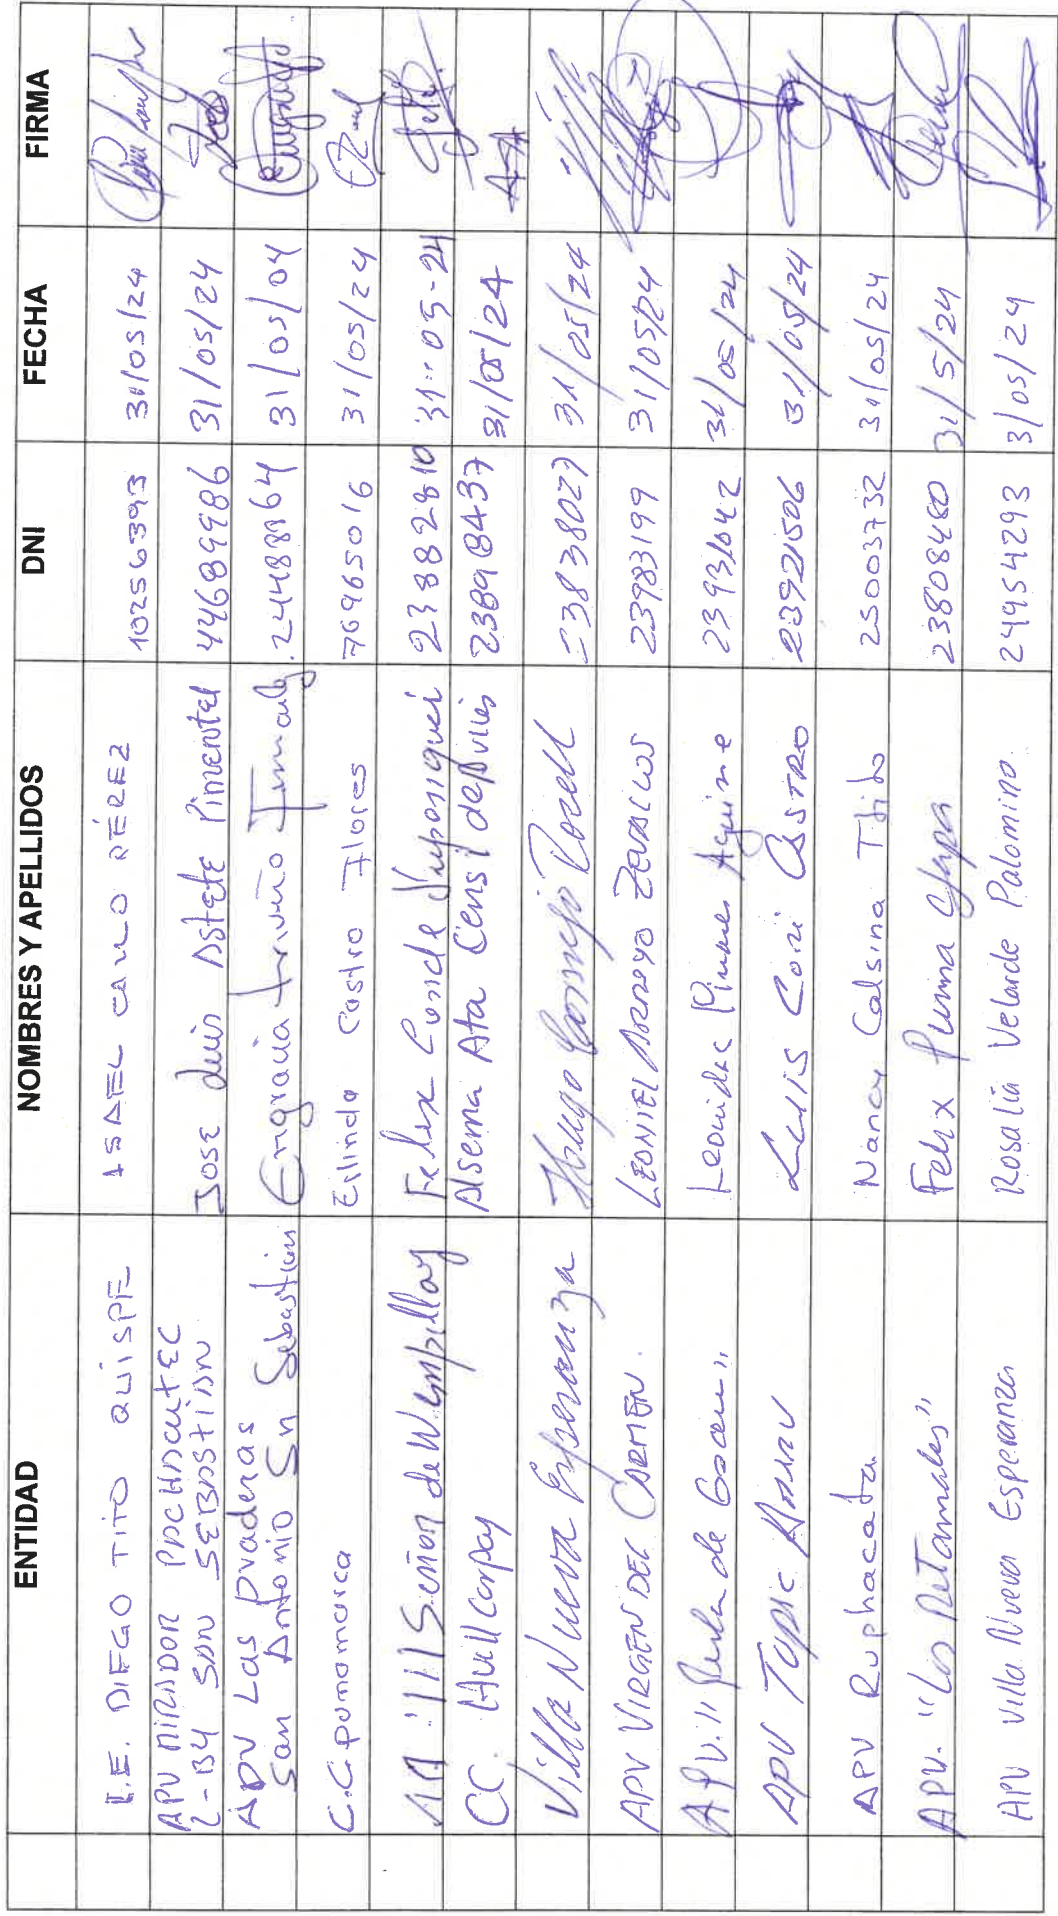 ENTIDAD NOMBRES Y APELLIDOS DNI FECHA FIRMA
I.E. DIEGO TITO QUISPE ASAEL CANO PÉREZ 10256393 31/05/24
APV MIRADOR PACHACUTEC
2-B4 SAN SEBASTIAN Jose Luis Astete Pimentel 44689986 31/05/24
APV Las Praderas
San Antonio Sn Sebastian Engracia Triveño 24488864 31/05/04
C.C. pumamarca Erlinda Castro Flores 76965016 31/05/24
AA "11 Señor de Wimpillay Felix Conde Yupanqui 23882810 31-05-24
CC. Huillcarpay Alsema Ata Censi 23898437 31/05/24
Villa Nueva Esperanza Hugo Cornejo 23838027 31/05/24
APV VIRGEN DEL CARMEN. LEONIEL Arroyo 23983199 31/05/24
A P V. " Perla de Leonidas Pinares Aguirre 23931042 31/05/24
APV Tupac Amaru Luis Cori Castro 23921506 31/05/24
APV Ruphacata Nancy Calsina Tito 25003732 31/05/24
APV. "Los Retamales" Felix Puma 23808480 31/5/24
APV Villa Nueva Esperanza Rosalia Velarde Palomino. 24954293 31/05/24